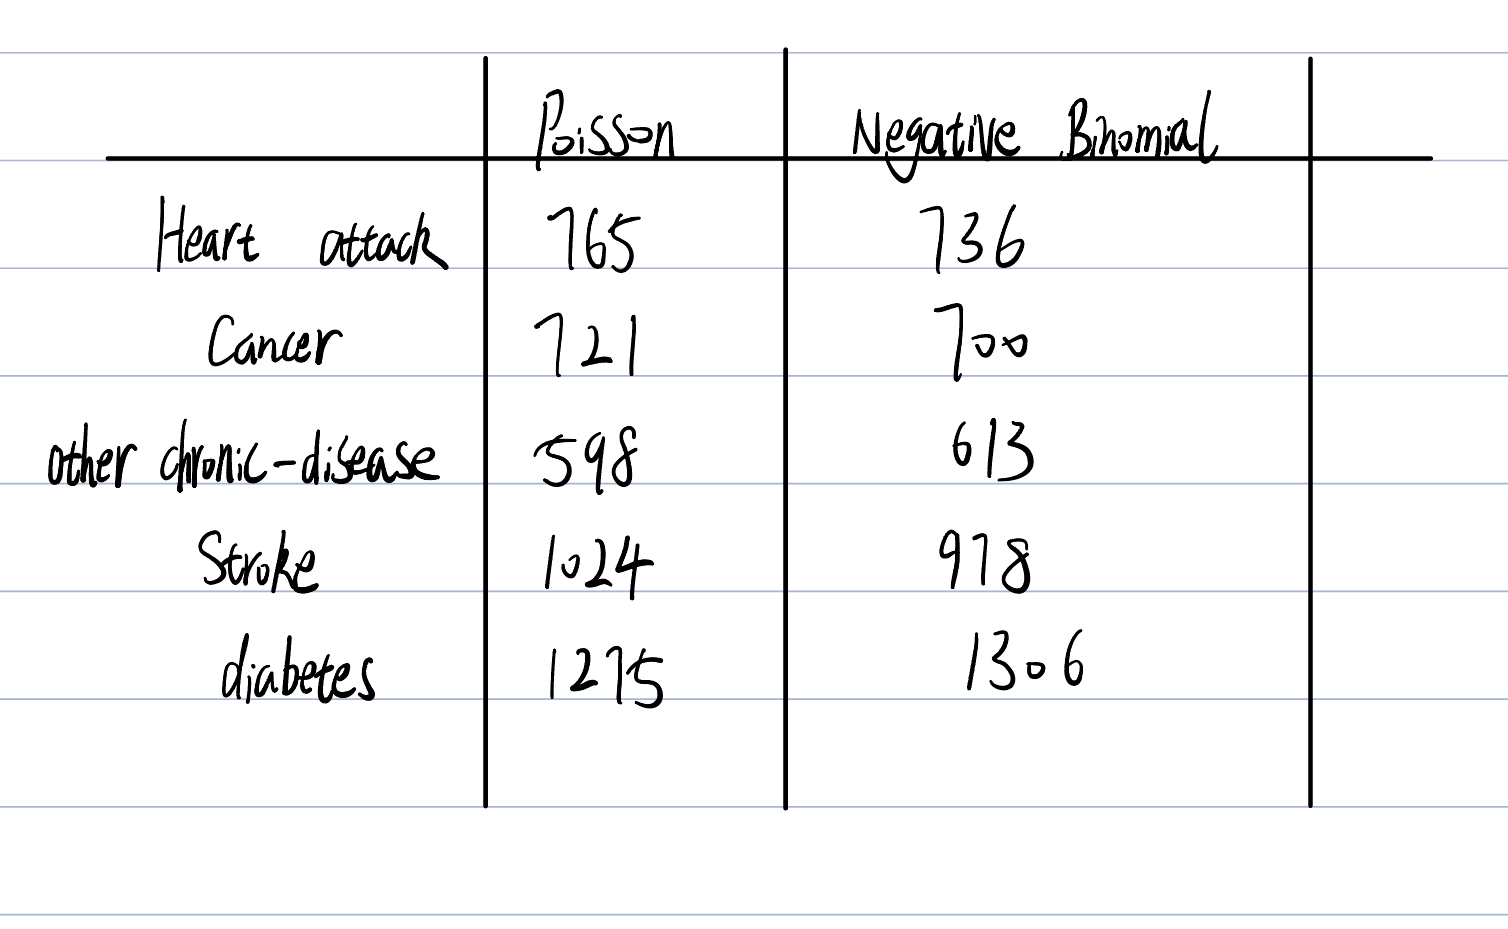 Poisson Negative Binomial
Heart attack 765 736
Cancer 721 700
other chronic-disease 598 613
Stroke 1024 978
diabetes 1275 1306